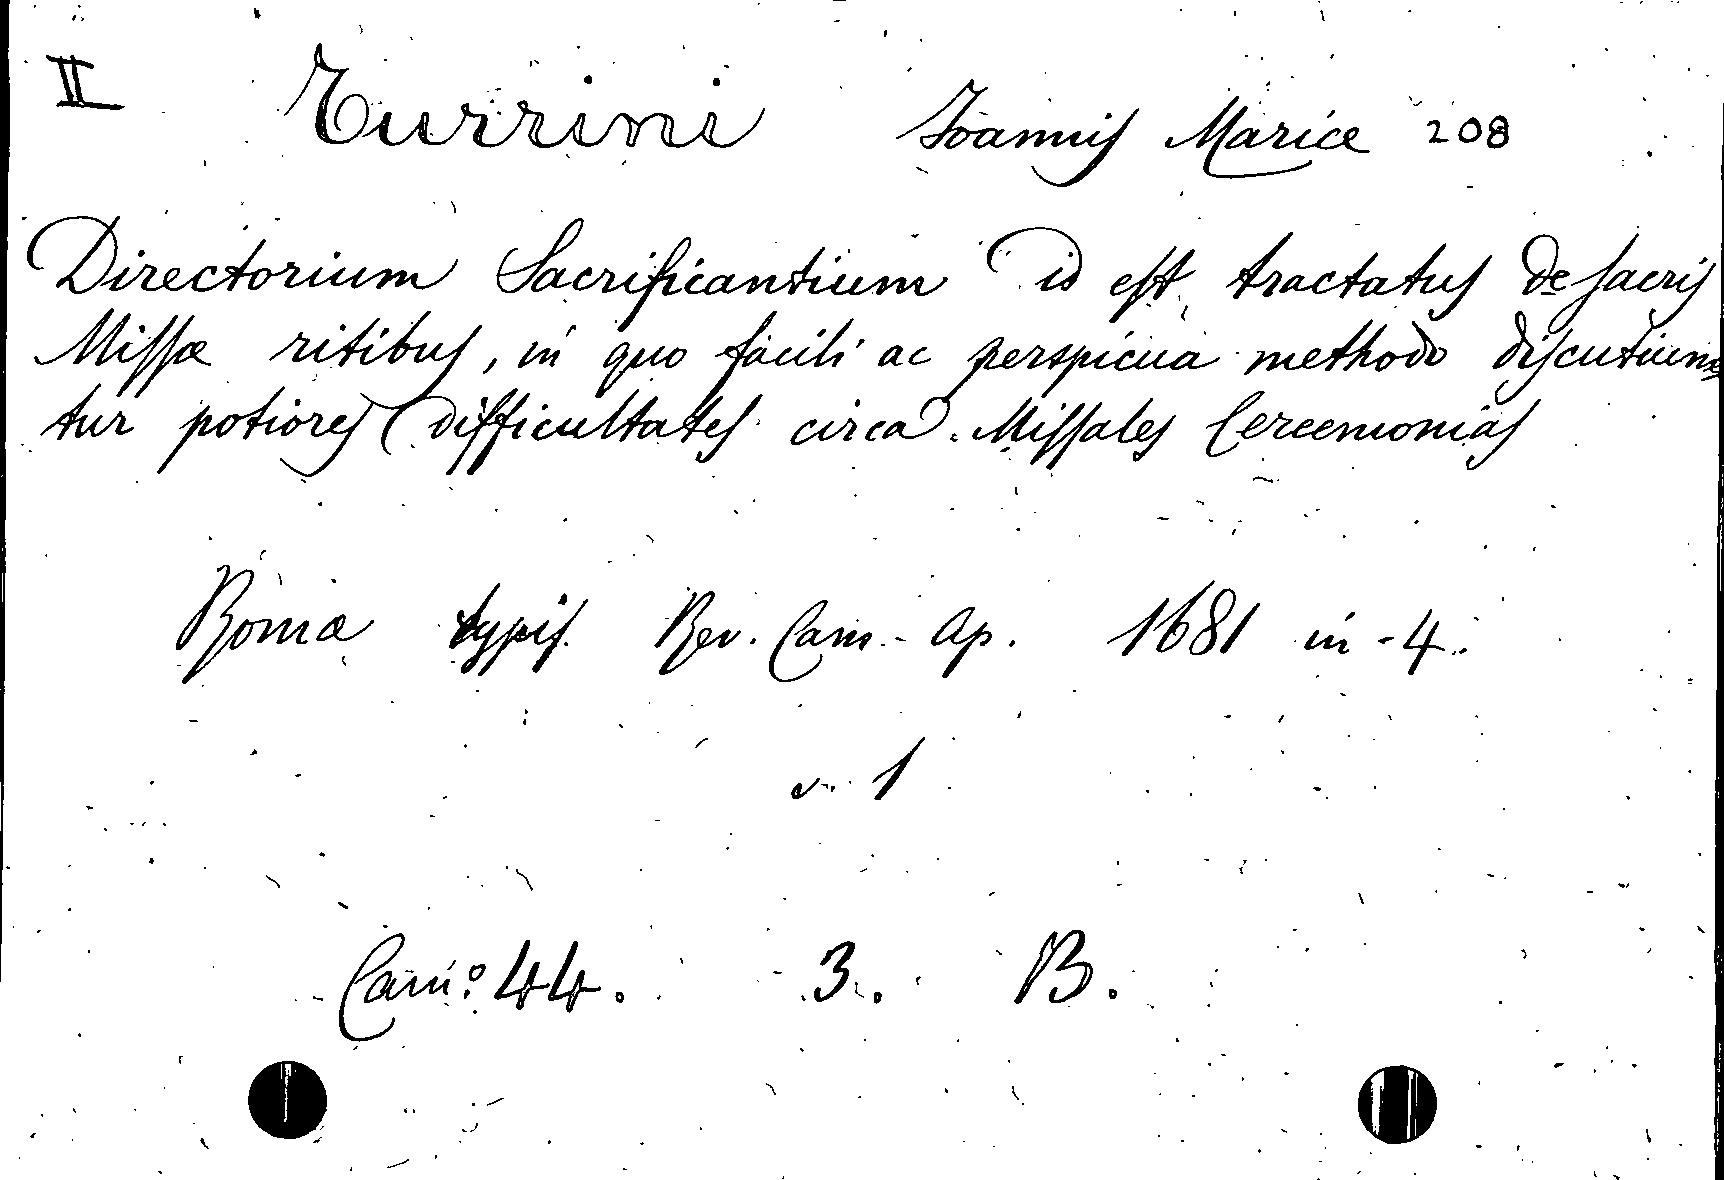 II Turrini Joannis Mariæ 208
Directorium Sacrificantium id est tractatus de sacris
Missæ ritibus, in quo facili ac perspicua methodo discutiun=
tur potiores difficultates circa Missales Cereemonias
Romæ typis Rev. Cam. Ap. 1681 in-4.
v. 1
Cam.º 44. 3. B.